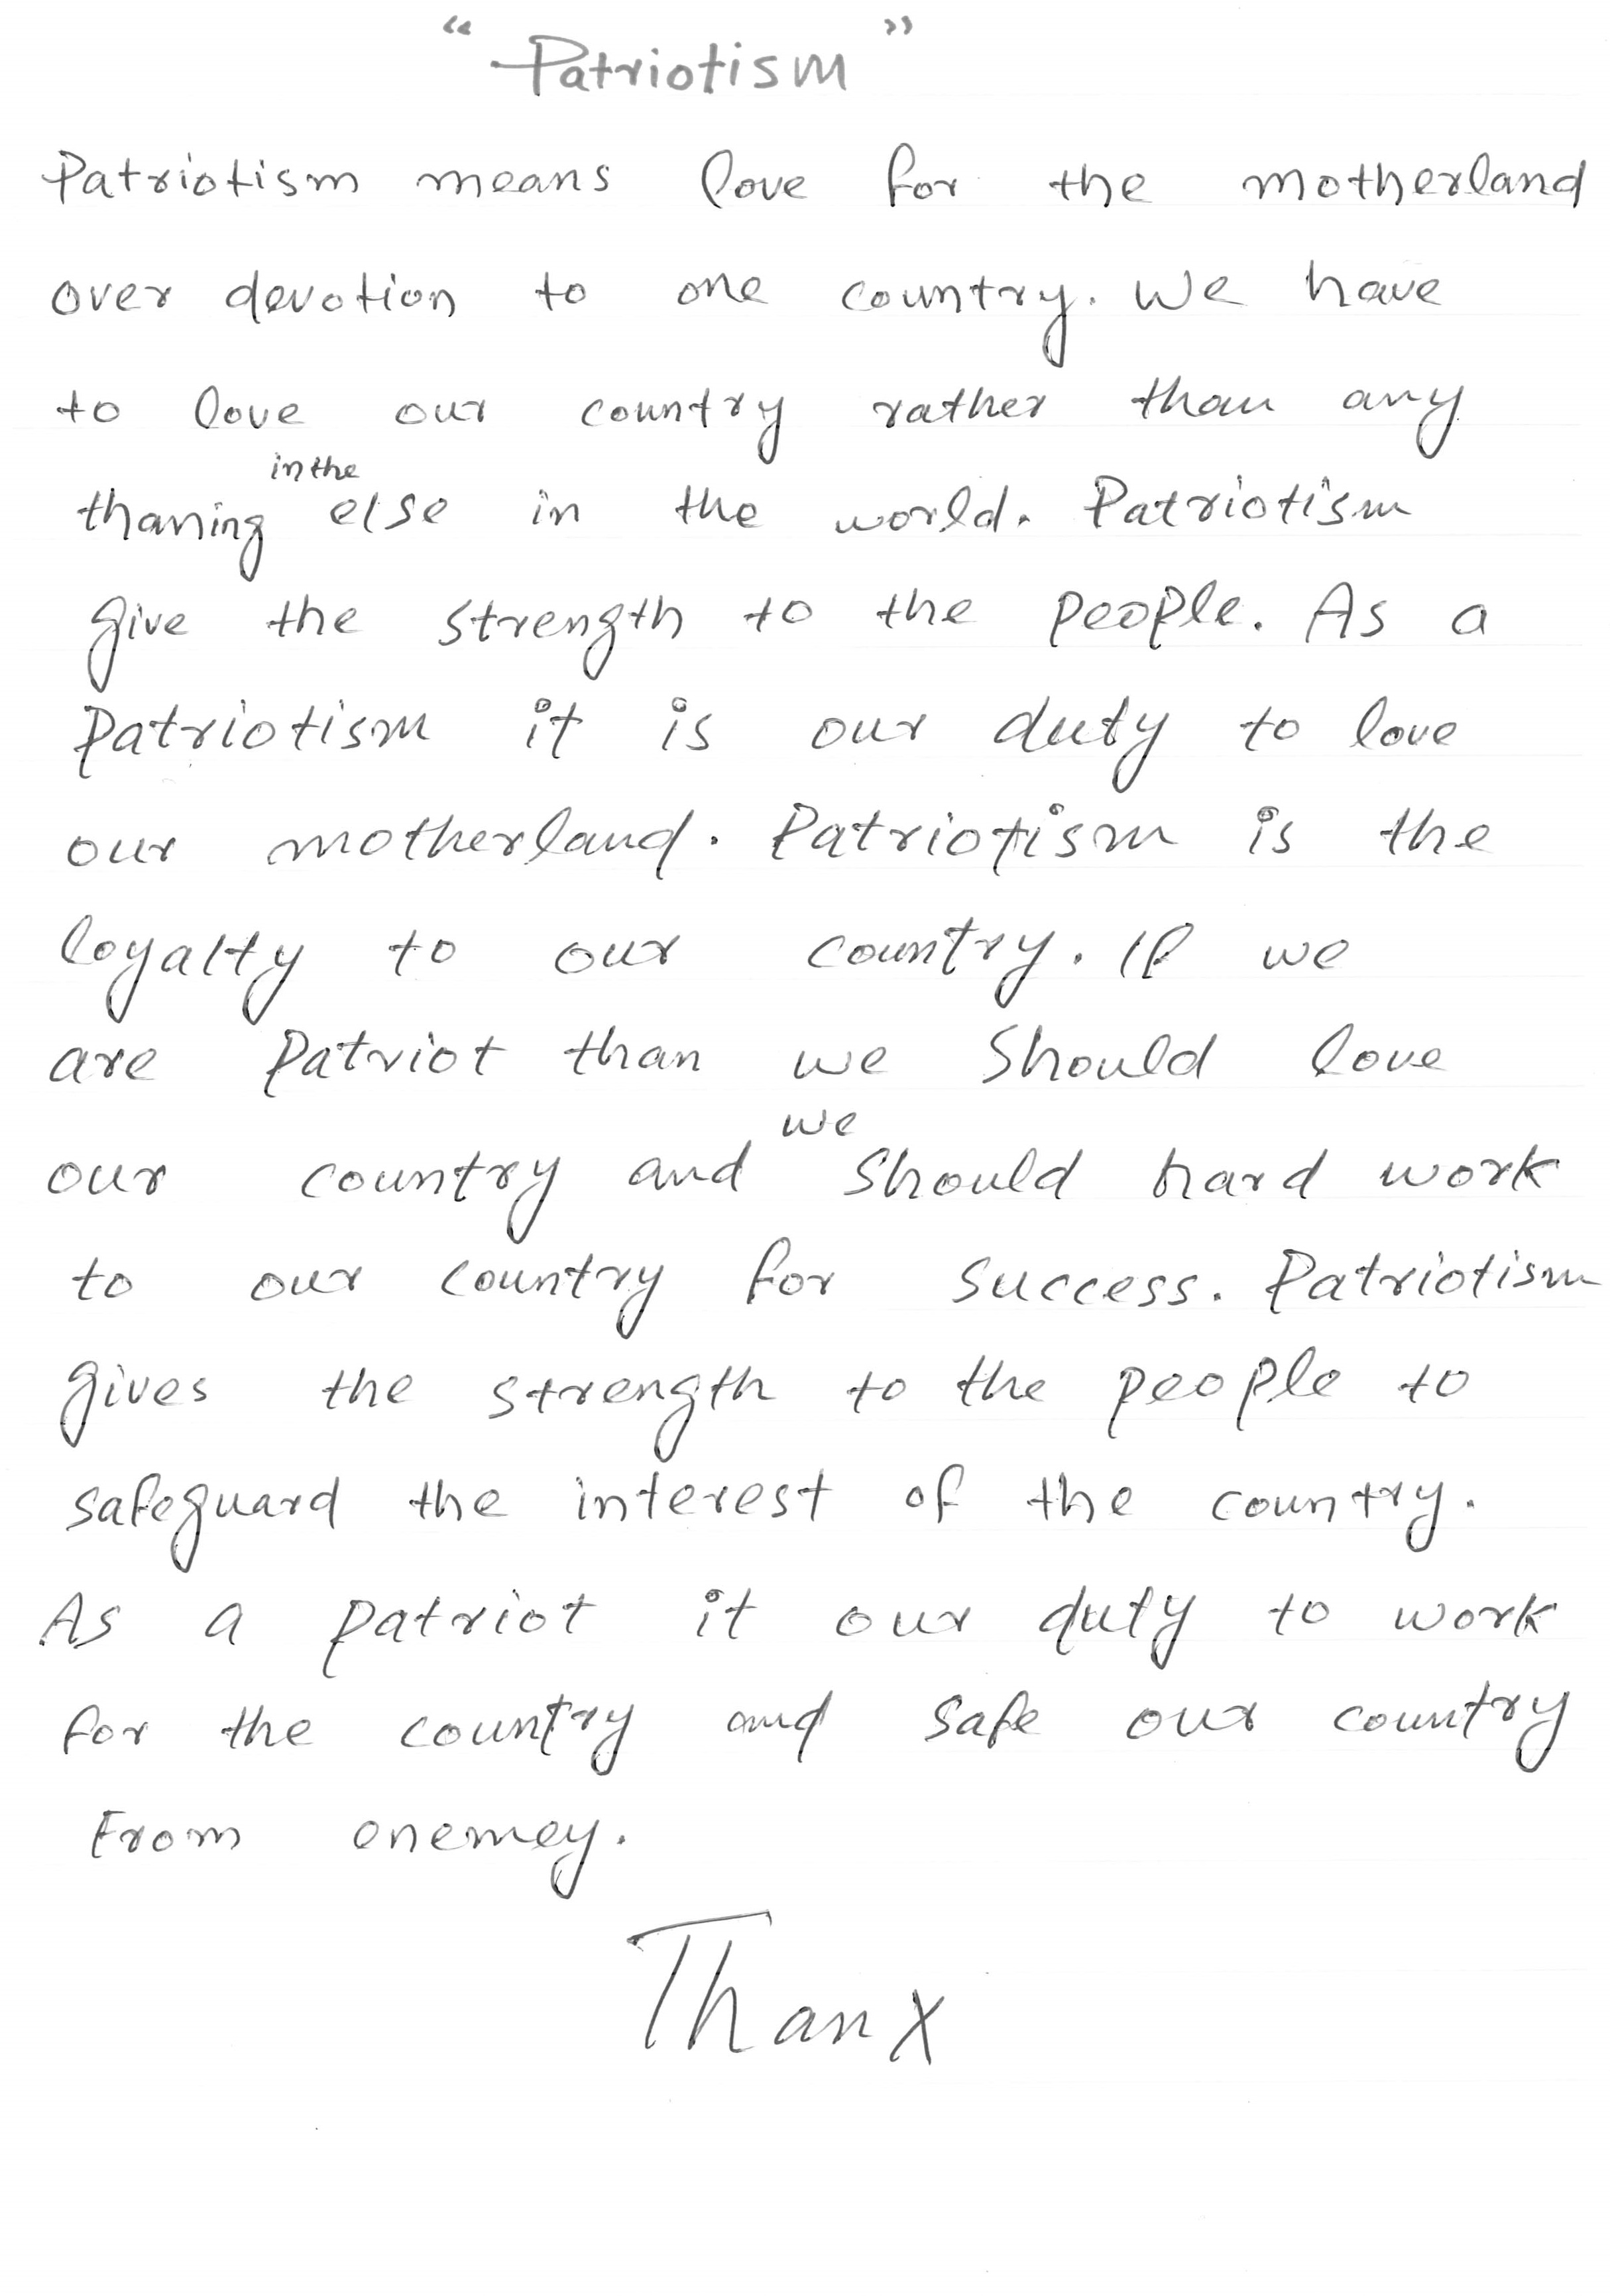 “Patriotism”
Patriotism means love for the motherland
over devotion to one country. We have
to love our country rather than any
in the
thaning else in the world. Patriotism
give the strength to the people. As a
Patriotism it is our duty to love
our motherland. Patriotism is the
loyalty to our country. If we
are Patriot than we should love
we
our country and should hard work
to our country for success. Patriotism
gives the strength to the people to
safeguard the interest of the country.
As a patriot it our duty to work
for the country and safe our country
From enemey.
Thanx